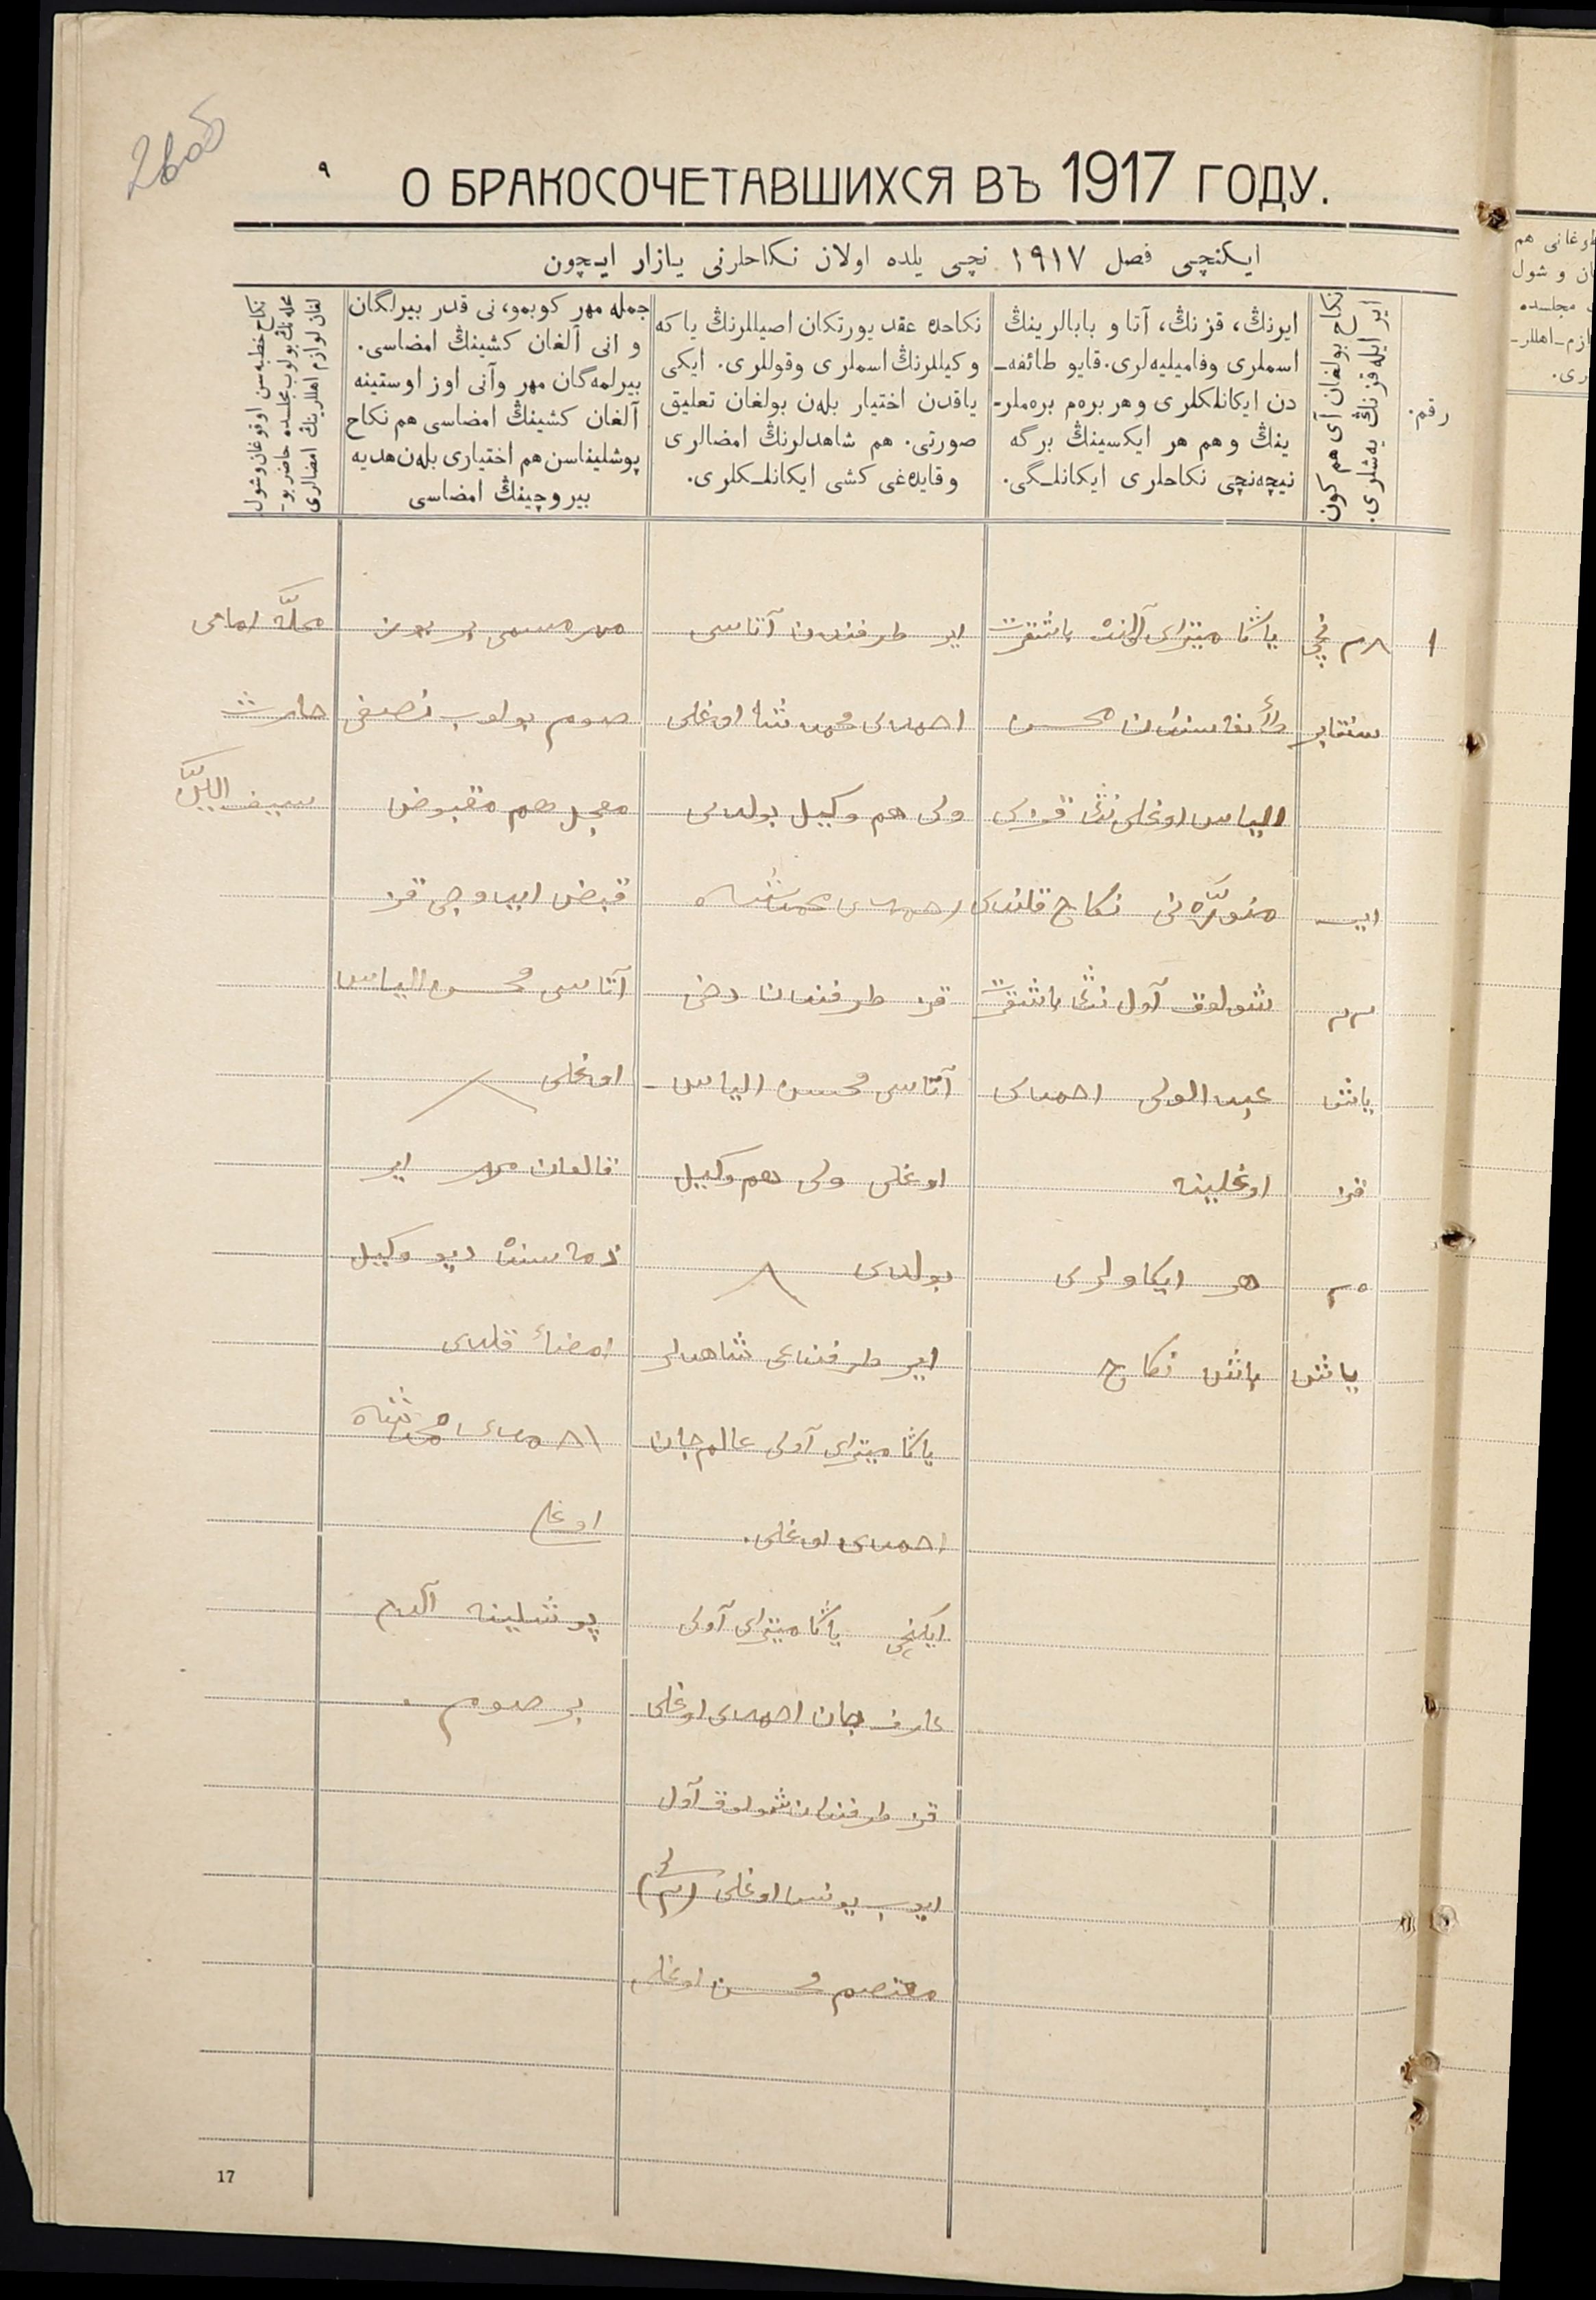 2606
٩
О БРАКОСОЧЕТАВШИХСЯ ВЪ 1917 ГОДУ.
ایکنچی فصل ١٩١٧ نچی یلده اولان نکاحلرنی یازار ایچون
رقم.
نکاح بولغان آی هم کون
ایر ایله قزنڭ یه‌شلری.
ایرنڭ، قزنڭ، آتا و بابالرینڭ
اسملری وفامیلیه‌لری. قایو طائفه‌ـ
دن ایکانلکلری وهر بره‌م بره‌ملرـ
ینڭ وهم هر ایکسینڭ برگه
نیچه‌نچی نکاحلری ایکانلـگی.
نکاحده عقد یورتکان اصیللرنڭ یا که
وکیللرنڭ اسملری وقوللری. ایکی
یاقدن اختیار بله‌ن بولغان تعلیق
صورتی. هم شاهدلرنڭ امضالری
وقایده‌غی کشی ایکانلـکلری.
جمله مهر کوبمو، نی قدر بیرلگان
و انی آلغان کشینڭ امضاسی.
بیرلمه‌گان مهر وآنی اوز اوستینه
آلغان کشینڭ امضاسی هم نکاح
پوشلیناسن هم اختیاری بله‌ن هدیه
بیروچینڭ امضاسی
نکاح خطبه‌سن اوقوغان وشول
محله‌نڭ بولوب مجلسده حاضر بو-
لغان لوازم اهللرینڭ امضالری
١
٢٨ نچی
سنتابر
ایر
٢٣
یاش
قز
٢٥
یاش
یاڭا میتراى باشقرت
محسن
الیاس اوغلی نڭ قزی
منوره‌نی نکاح قلندی
شولوق آول نڭ باشقرت
عبد الولی احمدی
اوغلینه
هر ایکاولری
باش نکاح
ایر طرفندن آتاسی
احمدی محمدشاه اوغلی
ولی هم وکیل بولدی
احمدی محمدشاه
قز طرفندان دخی
آتاسی محسن الیاس
اوغلی ولی هم وکیل
بولدی
ایر طرفندغی شاهدلر
یاڭا میترای آولی عالم جان
احمدی اوغلی.
ایکنچی یاڭا میترای آولی
عارف جان احمدی اوغلی
قز طرفندان شولوق آول
ایوب یونس اوغلی
معتصم محسن اوغلی
مهر مسمی بر یوز
صوم بولوب نصفی
معجل هم مقبوض
قبض ایدوچی قز
آتاسی محسن الیاس
اوغلی
قالغان مهر ایر
ذمه سنده دیو وکیل
امضاء قلدی
احمدی محمدشاه
اوغلی
پوشلینه آلدم
بر صوم.
محله امامی
حارث
سیف
17